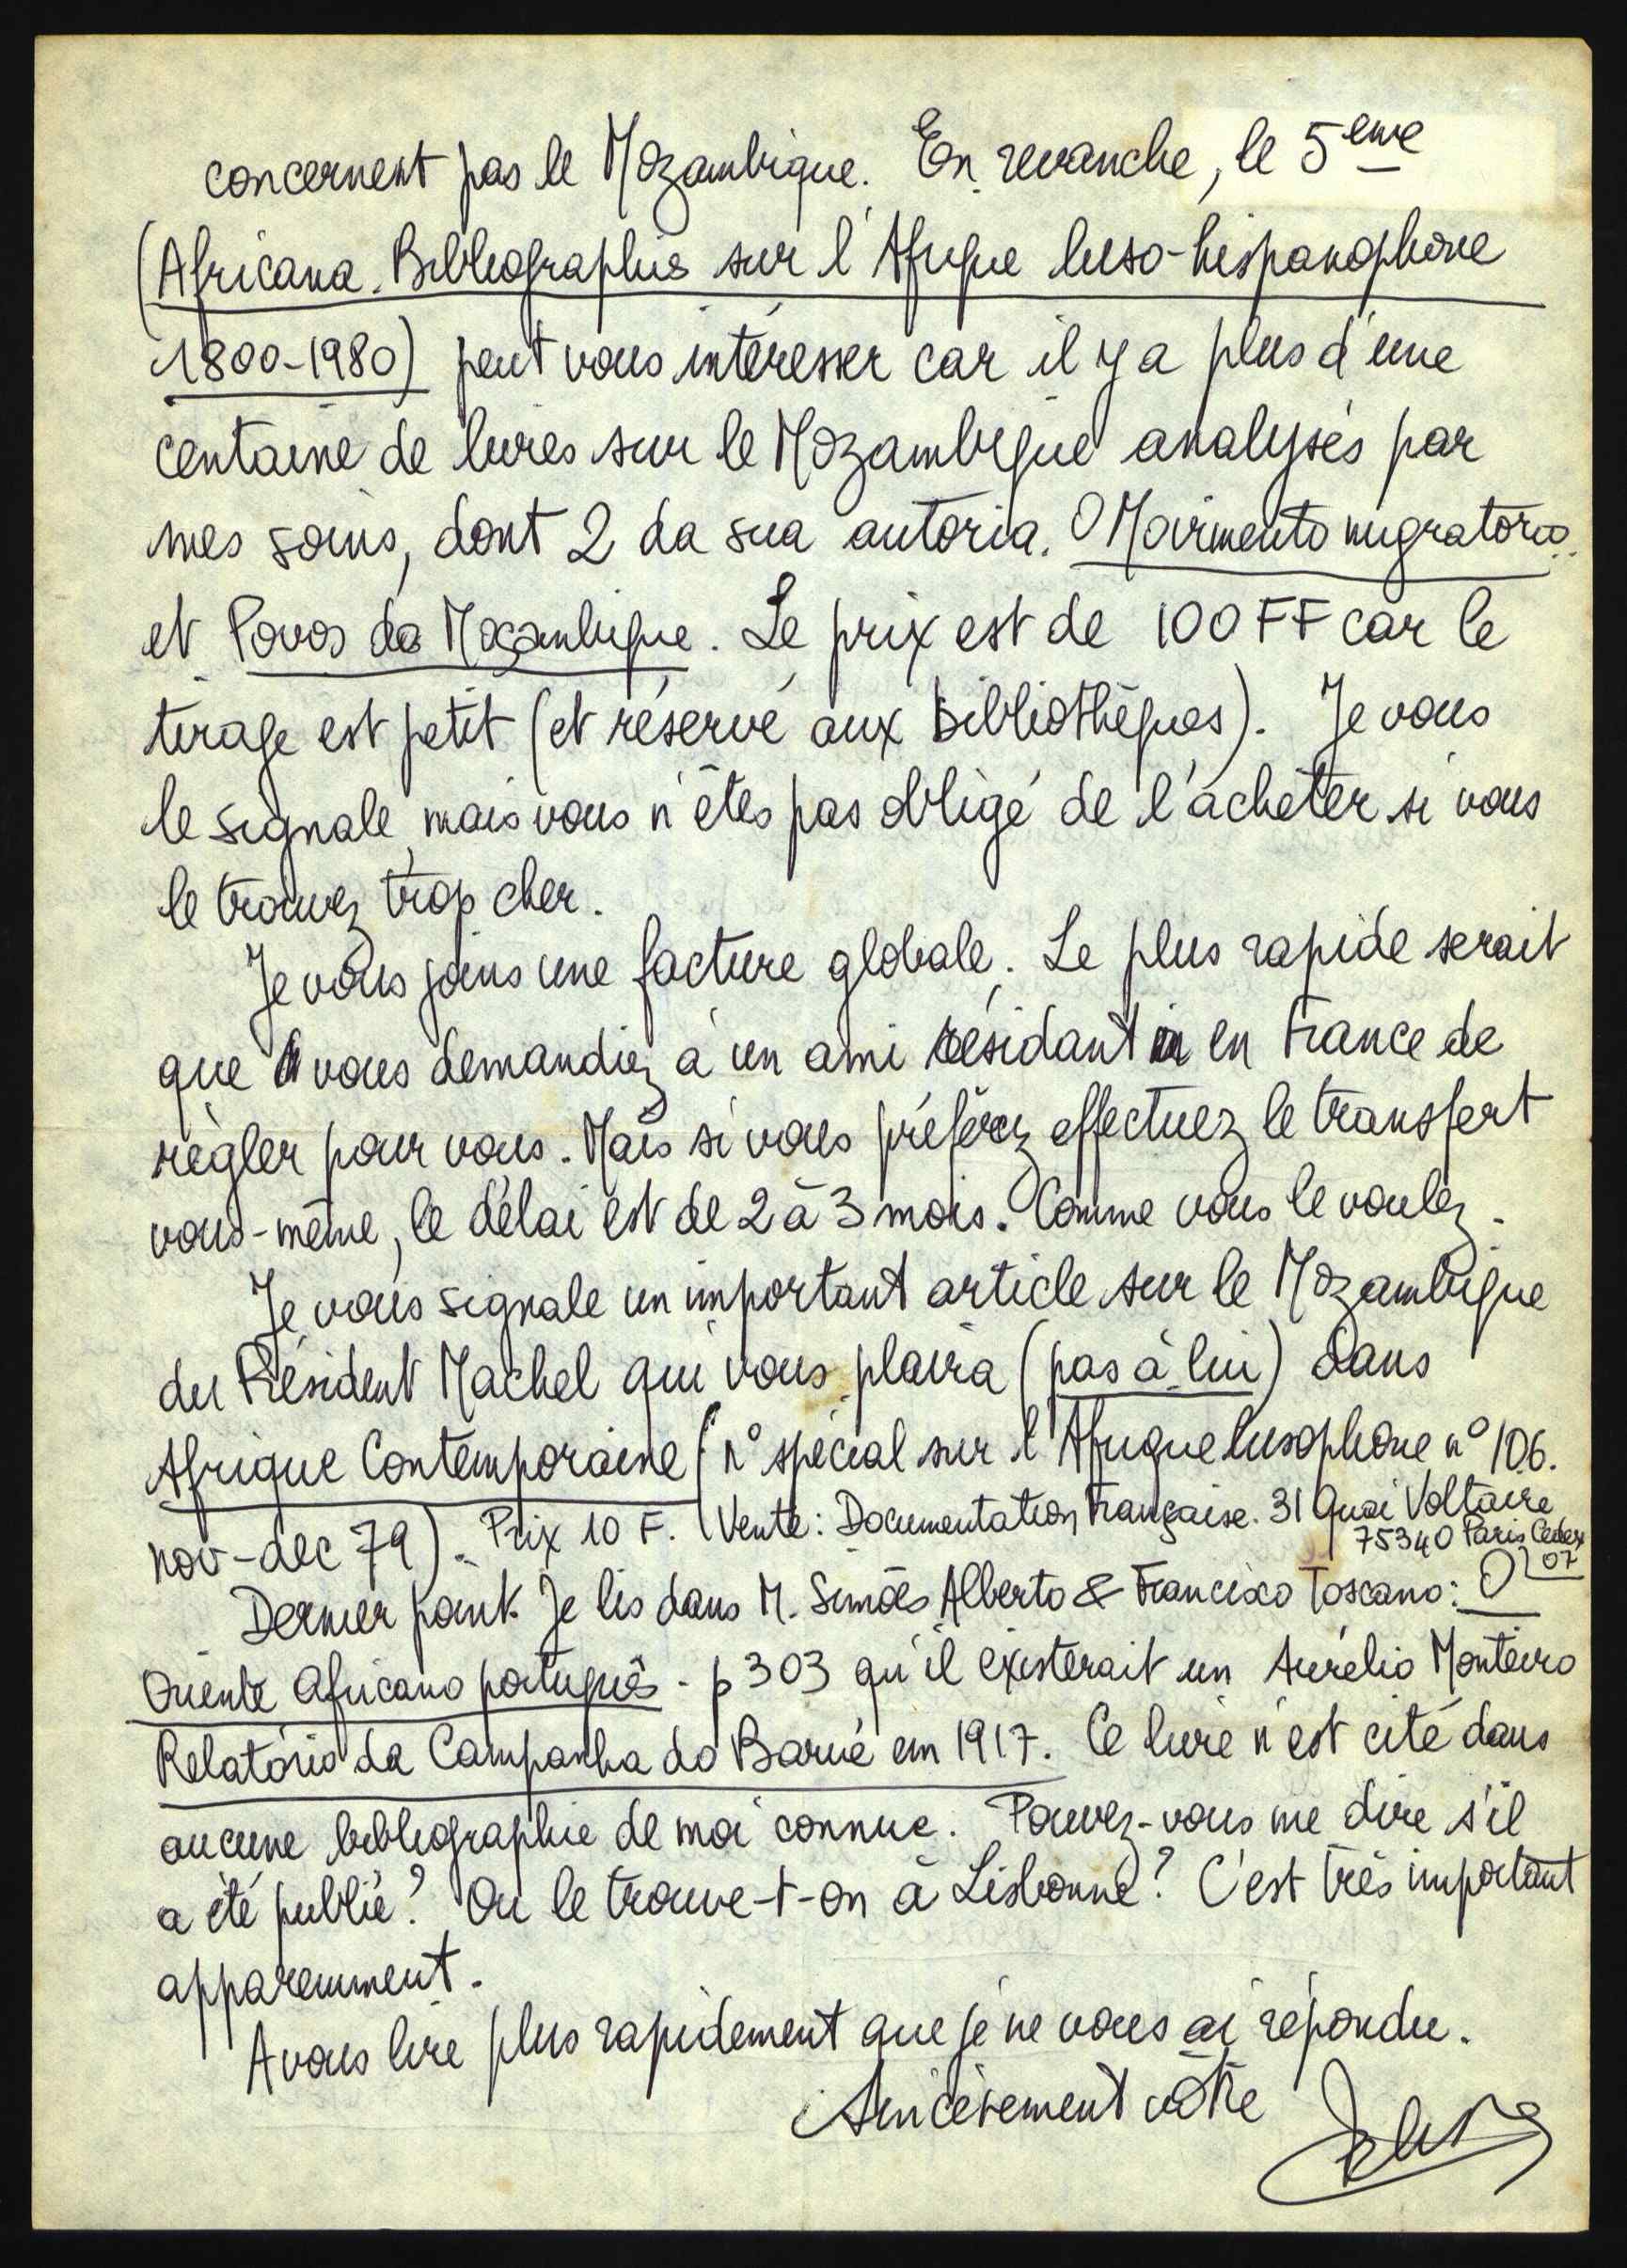 concernent pas le Mozambique. En revanche, le 5ème
(Africana. Bibliographies sur l'Afrique luso-hispanophone
1800-1980) peut vous intéresser car il y a plus d'une
centaine de livres sur le Mozambique analysés par
mes soins, dont 2 da sua autoria. O Movimento migratorio..
et Povos de Moçambique. Le prix est de 100 FF car le
tirage est petit (et réservé aux bibliothèques). Je vous
le signale, mais vous n'êtes pas obligé de l'acheter si vous
le trouvez trop cher.
Je vous joins une facture globale. Le plus rapide serait
que vous demandiez à un ami résidant en France de
régler pour vous. Mais si vous préférez effectuez le transfert
vous-même, le délai est de 2 à 3 mois. Comme vous le voulez.
Je vous signale un important article sur le Mozambique
du Président Machel qui vous plaira (pas à lui) dans
Afrique Contemporaine (n° spécial sur l'Afrique lusophone n° 106.
nov-dec 79). Prix 10 F. (Vente: Documentation Française. 31 Quai Voltaire
75340 Paris Cedex
07
Dernier point. Je lis dans M. Simões Alberto & Francisco Toscano: O
Oriente Africano português - p 303 qu'il existerait un Aurélio Monteiro
Relatório da Campanha do Barué em 1917. Ce livre n'est cité dans
aucune bibliographie de moi connue. Pouvez-vous me dire s'il
a été publié? Ou le trouve-t-on à Lisbonne? C'est très important
apparemment.
A vous lire plus rapidement que je ne vous ai répondu.
Sincèrement vôtre